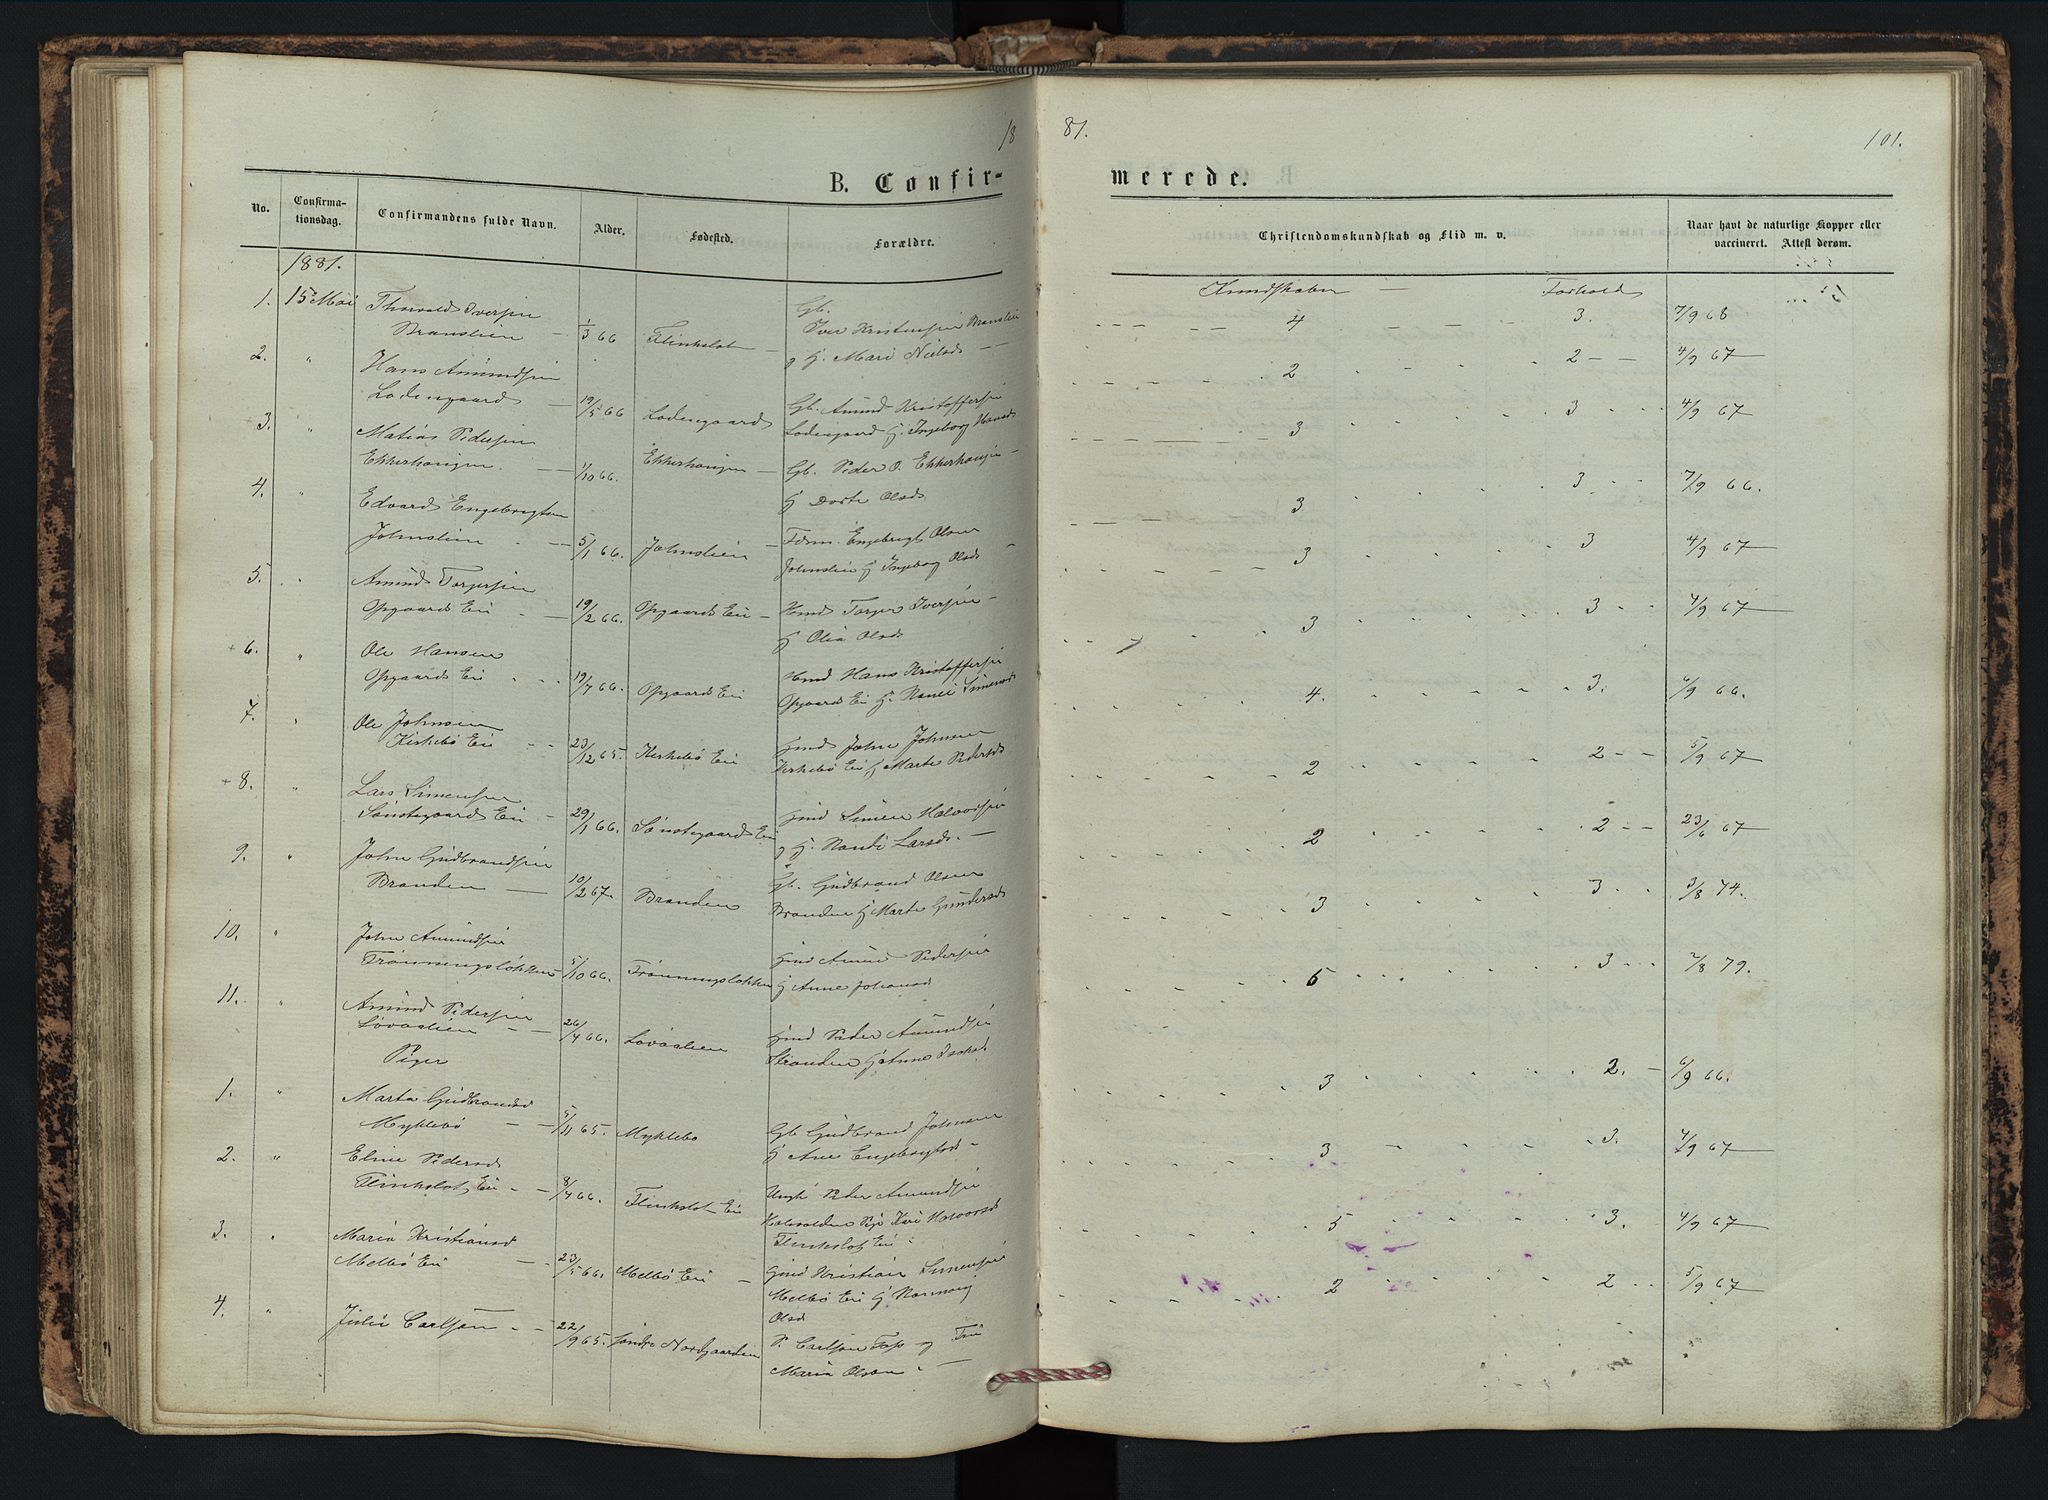 18
81.
101.
B. Confir-
merede.
No.
Confirma-
tionsdag.
Confirmandens fulde Navn.
Alder.
Fødested.
Forældre.
Christendomskundskab og Flid m. v.
Naar havt de naturlige Kopper eller
vaccineret. Attest derom.
1881.
Kundskaber — Forhold
1. 15 Mai Thorvald Iversen Gb.
Branslien — 1/3 66 Flinkslot — Iver Kristensen Branslien 4 3. 7/9 68
2. " Hans Amundsen g H. Mari Nielsd — 2 2 4/9 67
Lodengaard — 19/5 66 Lodengaard Gb. Amund Kristoffersen
3. " Matias Pedersen Lodengaard H Ingeborg Hansd 3 3 4/9 67
Ekkerhaugen — 1/10 66. Ekkerhaugen — Gb. Peder O. Ekkerhaugen —
4. " Edvard Engebrigtsen H Dorte Olsd 3 3 7/9 66.
Johnslien — 5/1 66. Johnslien — Engebrigt Olsen
5. " Amund Torgersen Johnslien H Ingeborg Olsd 3 3 4/9 67
Opgaards Eie — 19/2 66. Opgaards Eie — Hmd Torger Iversen —
+ 6. " Ole Hansen H Olia Olsd 3 3 4/9 67
Opgaards Eie 19/7 66. Opgaards Eie Hmd Hans Kristoffersen
7. " Ole Johnsen Opgaards Eie H. Simensd 4 3. 6/9 66.
Kirkebø Eie 23/12 65. Kirkebø Eie John Johnsen
+ 8. " Lars Simensen Kirkebø Eie H Marte Pedersd 2 2 5/9 67
Sønstegaards Eie — 29/1 66. Sønstegaards Eie Simen Halvorsen
9. " John Gudbrandsen g H. Randi Larsd. — 2 2 23/6 67
Branden — 10/2 67. Branden Gb. Gudbrand Olsen
Branden H Marte Gundersd 3 3 3/8 74.
10. " John Amundsen
Trønningsløkken 5/10 66. Trønningsløkken Amund Pedersen
H Anne Johansd 5 3 7/8 79.
11. " Amund Pedersen
Løvaslien — 26/4 66. Løvaslien Peder Amundsen
Piger Branden H Anne
1. " Marta Gudbrandsd 3 2. — 6/9 66.
Myklebø — 5/11 65. Myklebø Gb Gudbrand Johnsen
2. " Eline Pedersd H Ane Engebrigtsd — 3 3. 4/9 67
Flinkslot Eie — 8/4 66. Flinkslot Eie Ungk Peder Amundsen
3. " Maria Kristiansd Pige Kari Halvorsd 5 3. 4/9 67
Flinkslot Eie
Melbø Eie — 23/5 66. Melbø Eie — Kristian Simensen
4. " Melbø Eie H 2 2 5/9 67
Olsd
Julie Carlson — 22/9 65. Søndre Nordgaarden P. Carlson og
Maria Olson —